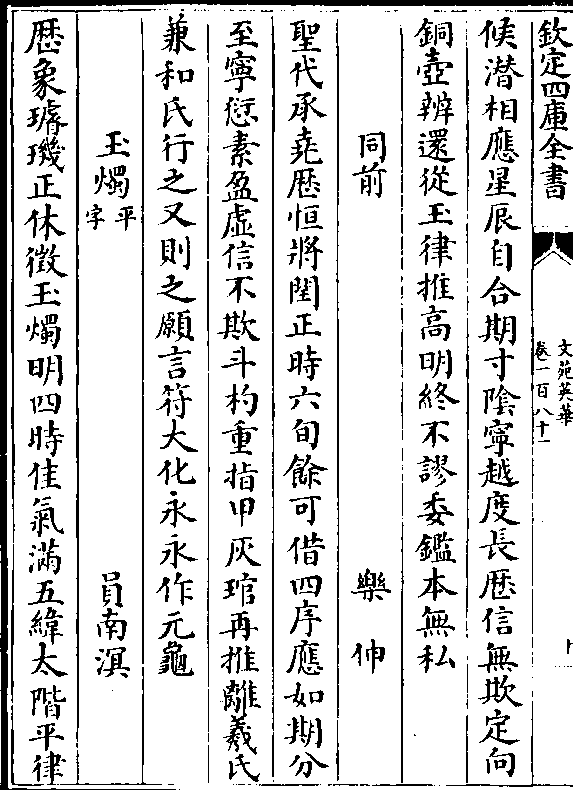 欽定四庫全書
文苑英華
卷一百八十一
候潜相應星辰自合期寸陰寧越度長厯信無欺定向
銅壺辨還從玉律推高明終不謬委鑑本無私
同前 樂伸
聖代承堯厯恒將閏正時六旬餘可借四序應如期分
至寧愆素盈虛信不欺斗杓重指甲灰琯再推離羲氏
兼和氏行之又則之願言符大化永永作元龜
玉燭平字 員南溟
厯象璿璣正休徵玉燭明四時佳氣滿五緯太階平律